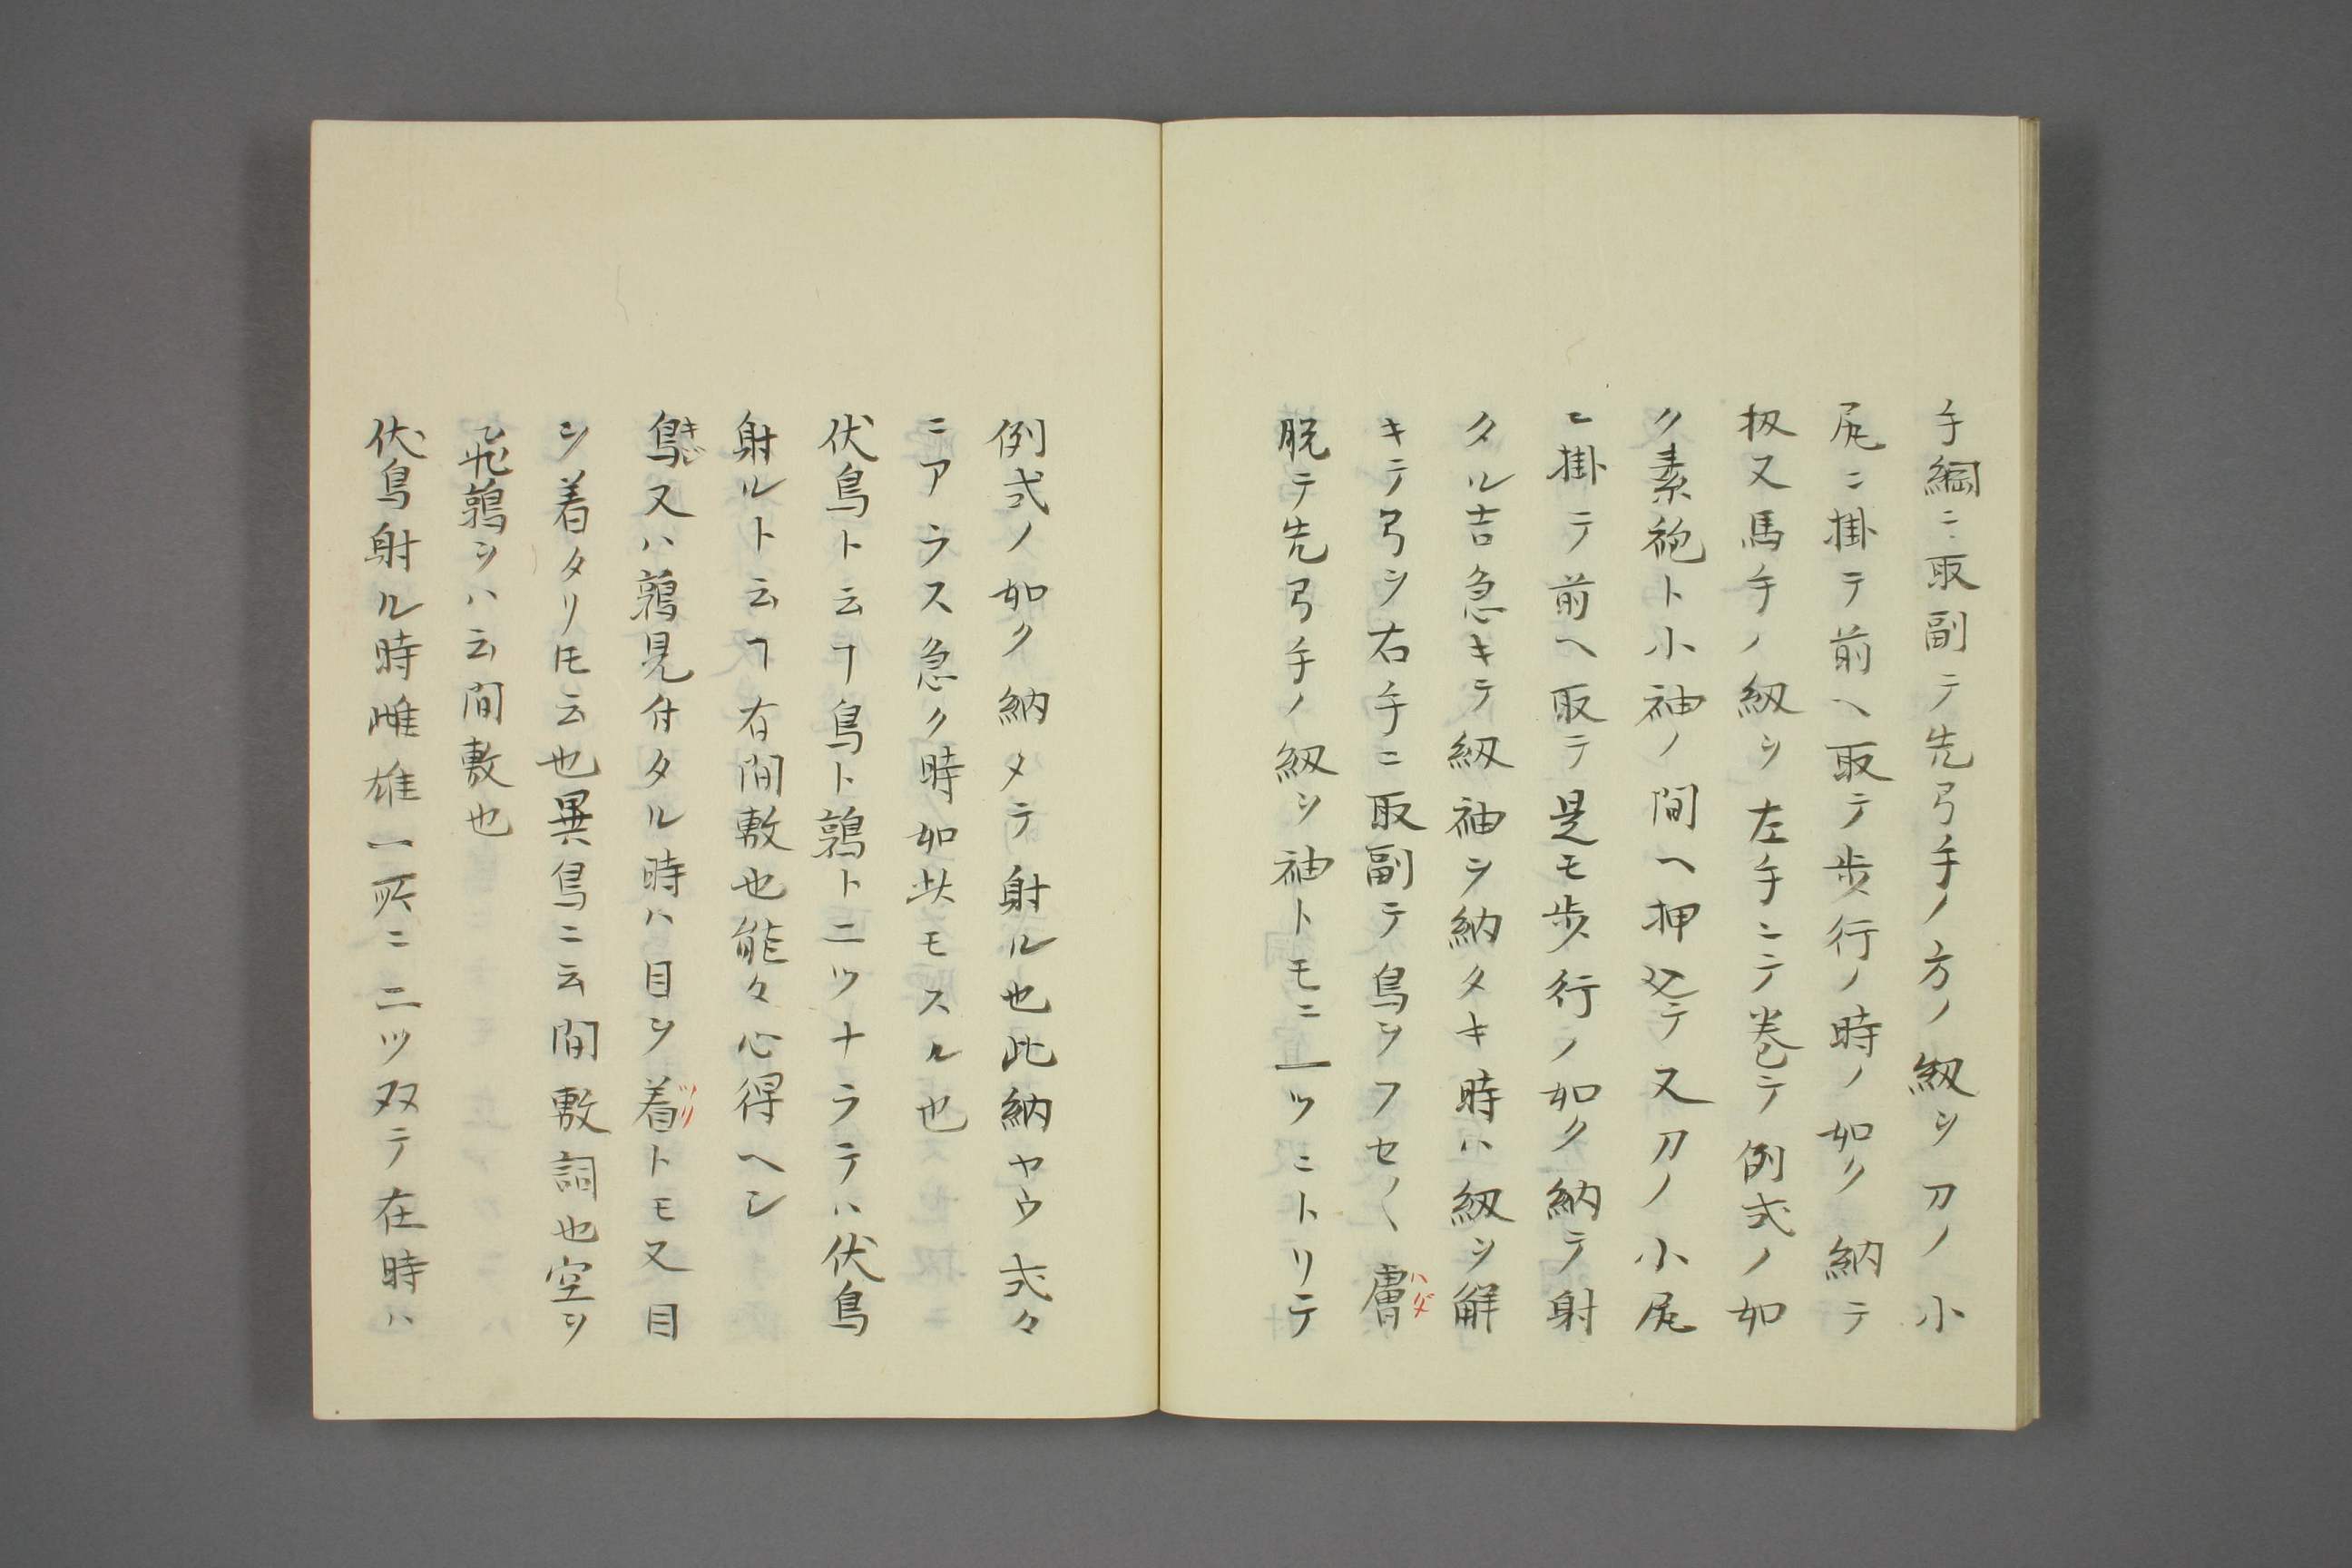 手綱ニ取副テ先弓手ノ方ノ紐ヲ刀ノ小
尻ニ掛テ前ヘ取テ歩行ノ時ノ如ク納テ
扨又馬手ノ紐ヲ左手ニテ巻テ例式ノ如
ク素袍ト小袖ノ間ヘ押込テ又刀ノ小尻
ニ掛テ前ヘ取テ是モ歩行ノ如ク納テ射
タル吉急キテ紐袖ヲ納タキ時ハ紐ヲ解
キテ弓ヲ右手ニ取副テ鳥ヲフセ〱膚ハダ
脱テ先弓手ノ紐ヲ袖トモニ一ツニトリテ
例式ノ如ク納メテ射ル也此納ヤウ式々
ニアラス急ク時如此モスル也
伏鳥ト云ヿ鳥ト鶉ト二ツナラテハ伏鳥
射ルト云ヿ有間敷也能々心得ヘシ
鳥キジ又ハ鶉見付タル時ハ目ヲ着ツリトモ又目
ヲ着タリ𪜈云也異鳥ニ云間敷詞也空ヲ
飛鶉ヲハ云間敷也
伏鳥射ル時雌雄一所ニ二ツ双テ在時ハ